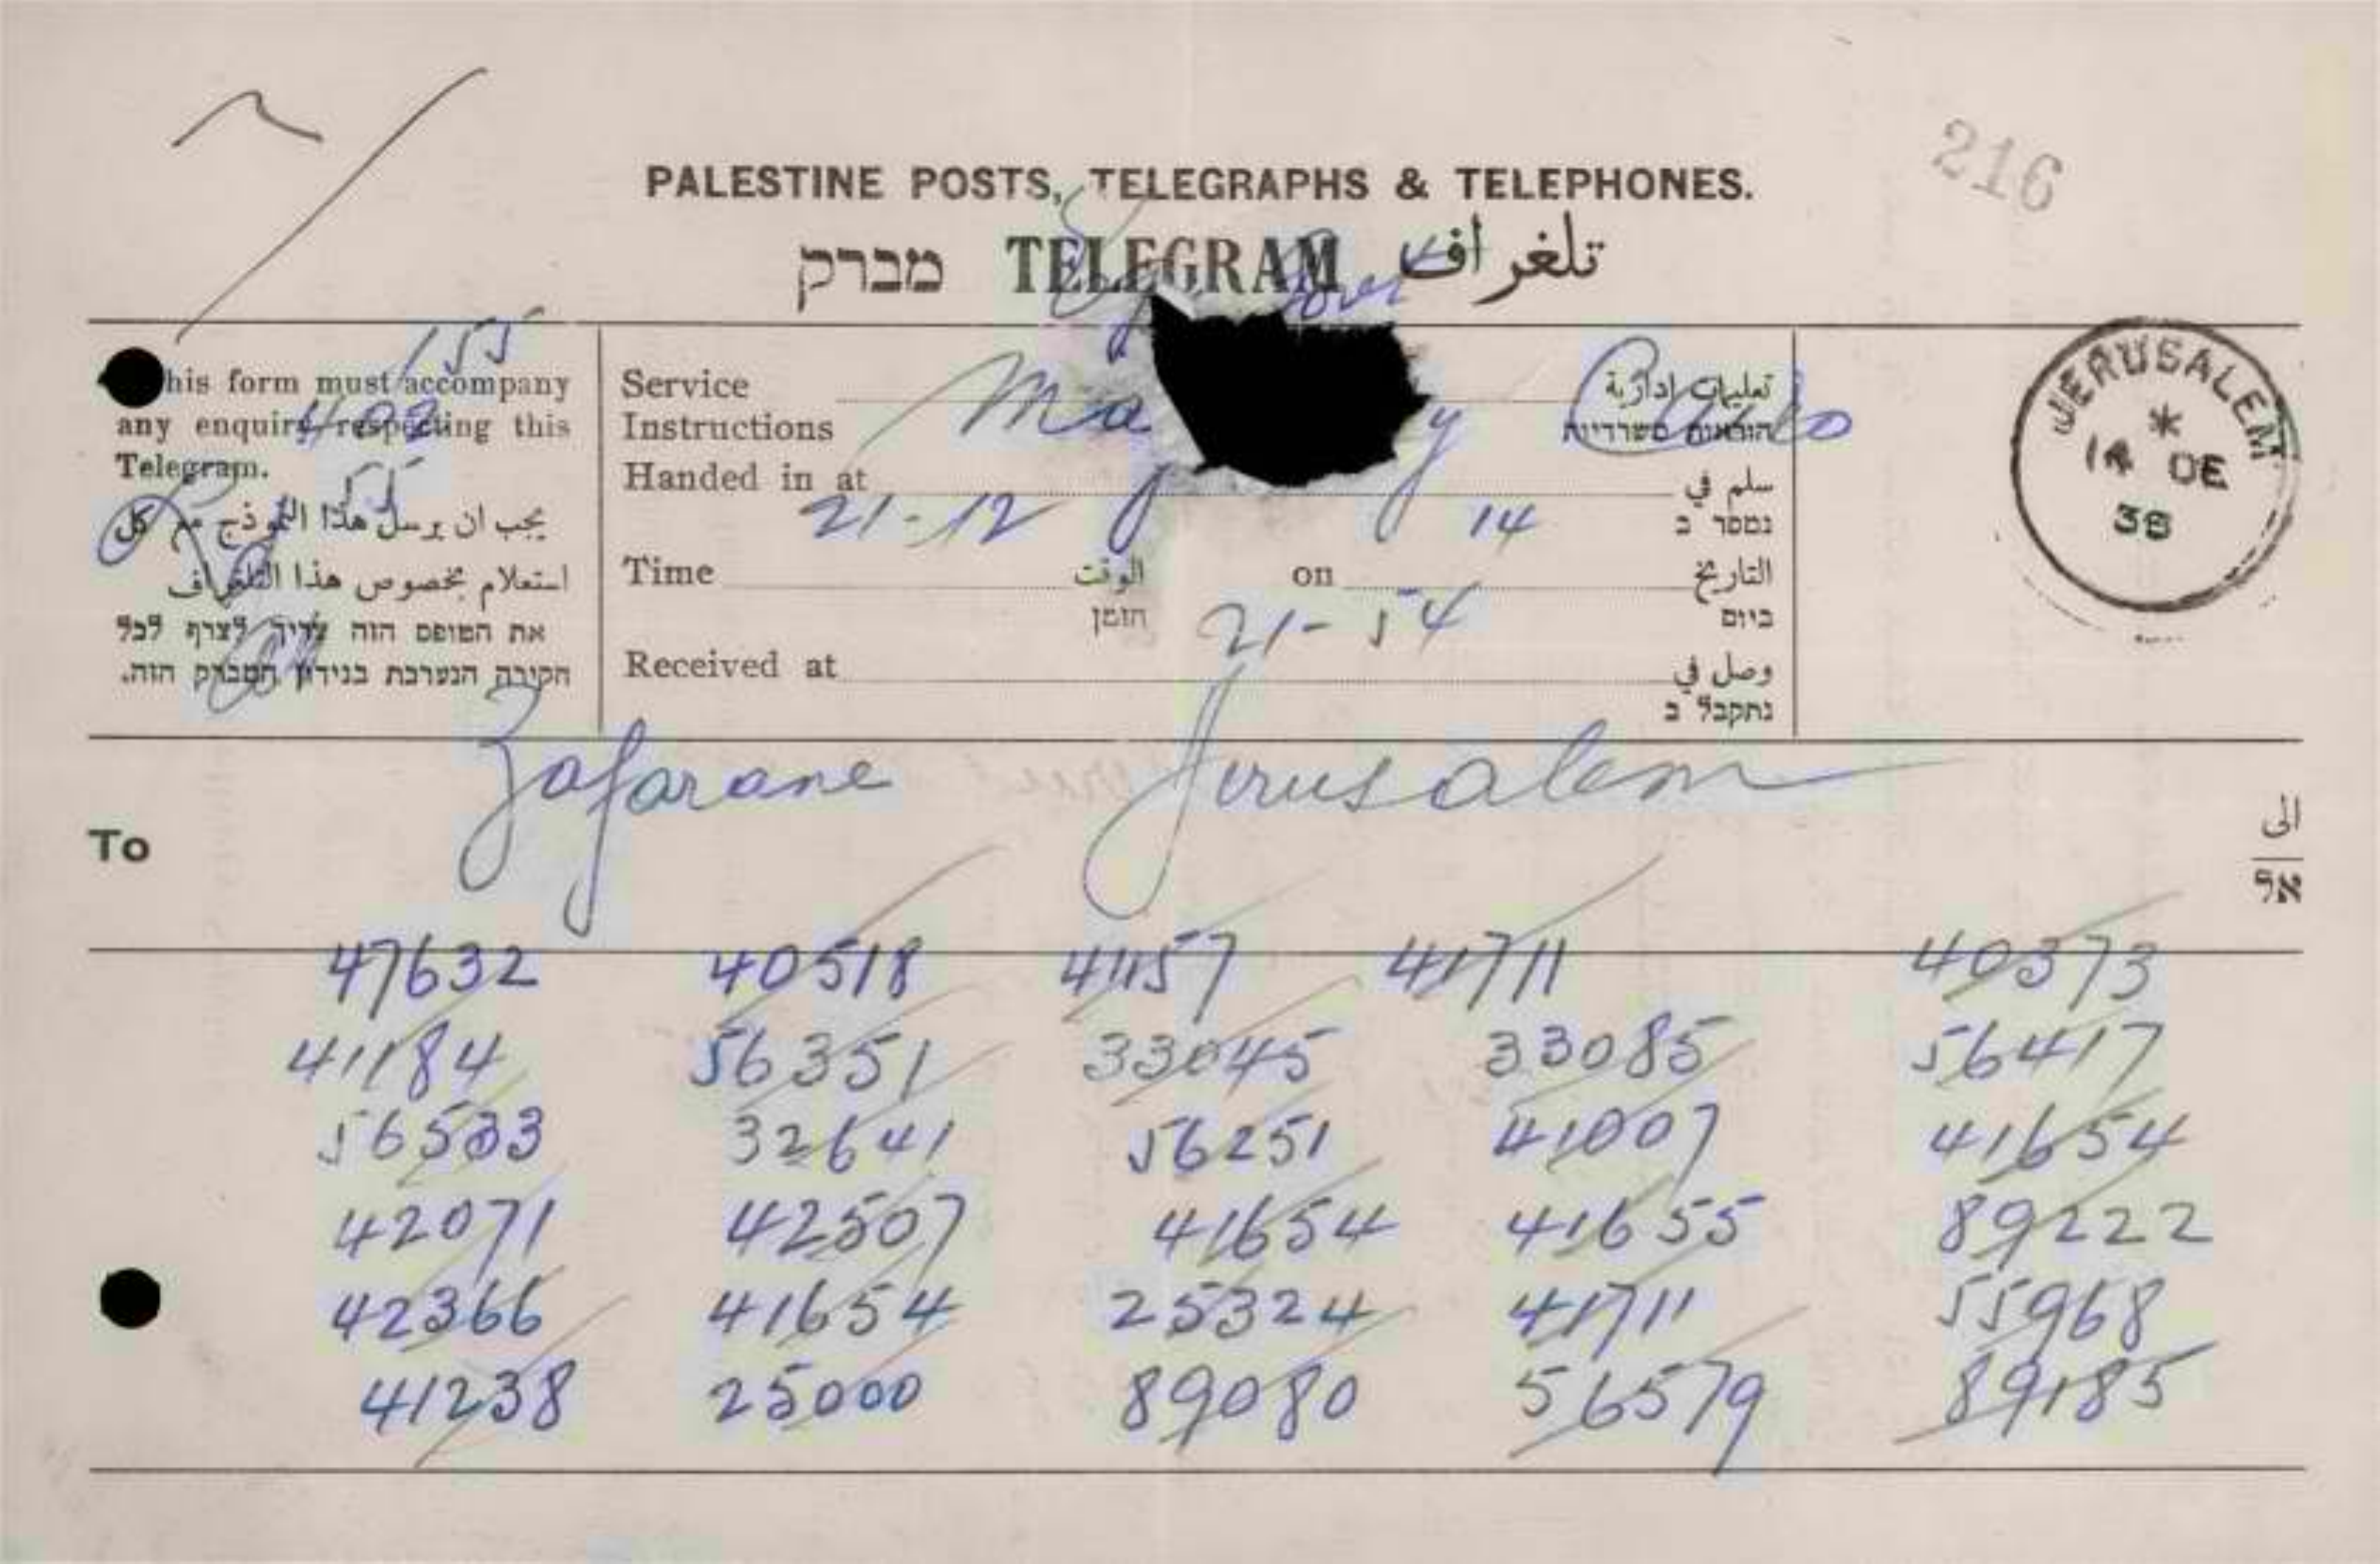 216
PALESTINE POSTS, TELEGRAPHS & TELEPHONES.
מברק TELEGRAM تلغراف
155
his form must accompany
any enquiry respecting this
Telegram.
يجب ان يرسل هذا النموذج مع كل
استعلام بخصوص هذا التلغراف
את הטופס הזה צריך לצרף לכל
חקירה הנערכת בנידון המברק הזה.
Service
Instructions
تعليمات إدارية
הוראות משרדיות
Cairo
Handed in at سلم في
נמסר ב
21-12 14
Time الوقت on التاريخ
הזמן ביום
21-54
Received at وصل في
נתקבל ב
JERUSALEM
14 DE
38
To Zafarane Jerusalem الى
אל
47632 40518 41157 41711 40373
41184 56351 33045 33085 56417
56533 32641 56251 41007 41654
42071 42507 41654 41655 89222
42366 41654 25324 41711 55968
41238 25000 89080 56579 89185